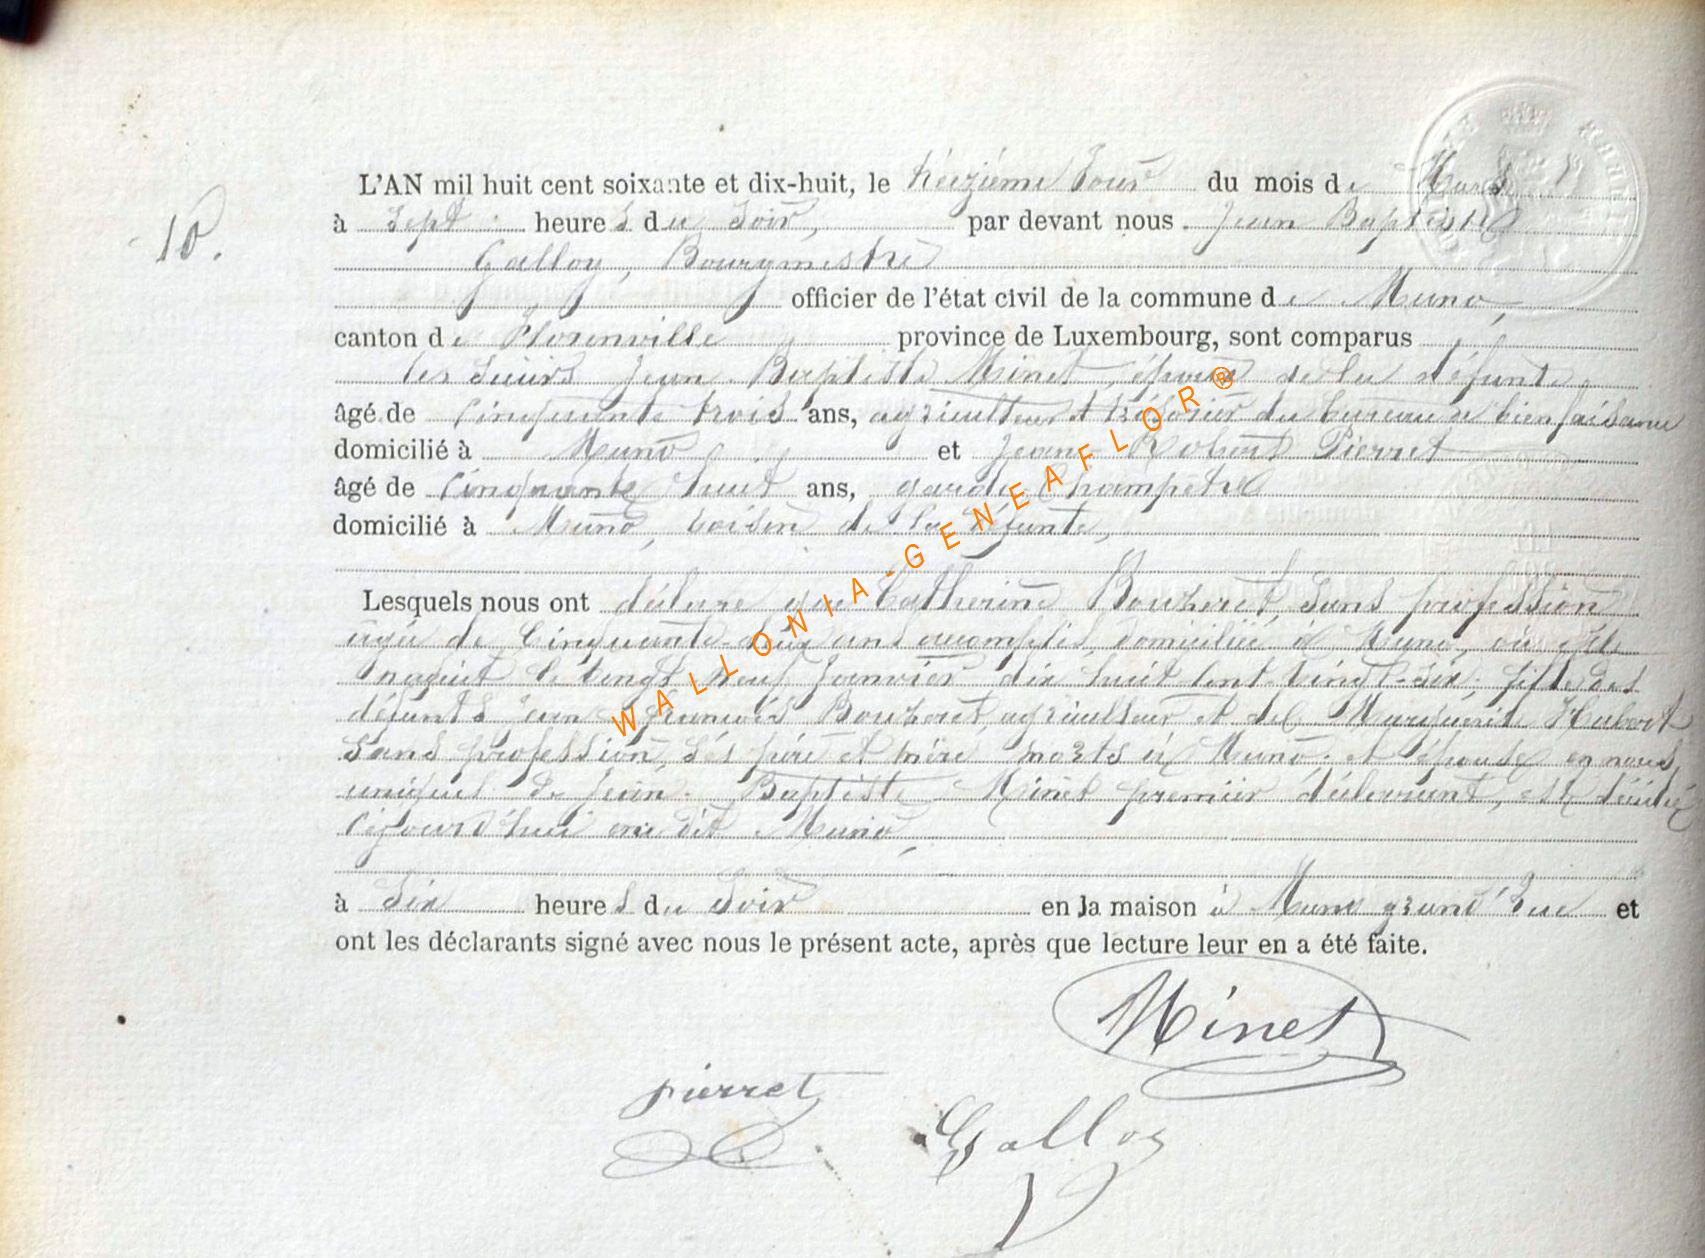 10.
L'AN mil huit cent soixante et dix-huit, le treizième jour du mois de Mars
à sept heures du soir, par devant nous Jean Baptiste
Galloy, Bourgmestre
officier de l'état civil de la commune de Muno,
canton de Florenville province de Luxembourg, sont comparus
les sieurs Jean Baptiste Minet, époux de la défunte,
âgé de cinquante trois ans, agriculteur et trésorier du bureau de bienfaisance
domicilié à Muno et Jean Robert Pierret
âgé de cinquante huit ans, garde champêtre
domicilié à Muno, voisin de la défunte,
Lesquels nous ont déclaré que Catherine Bouzeret, sans profession
agée de cinquante-deux ans accomplis, domiciliée à Muno, où elle
naquit le vingt neuf Janvier dix huit cent vingt-six, fille des
défunts Jean François Bouzeret, agriculteur et de Marguerite Hubert
sans profession, ses père et mère morts à Muno, et épouse en noces
uniques de Jean Baptiste Minet premier déclarant, est décédée
cejourd'hui audit Muno,
à six heures du soir en la maison à Muno grand'rue et
ont les déclarants signé avec nous le présent acte, après que lecture leur en a été faite.
Minet
pierret
Galloy
WALLONIA-GENEAFLOR®